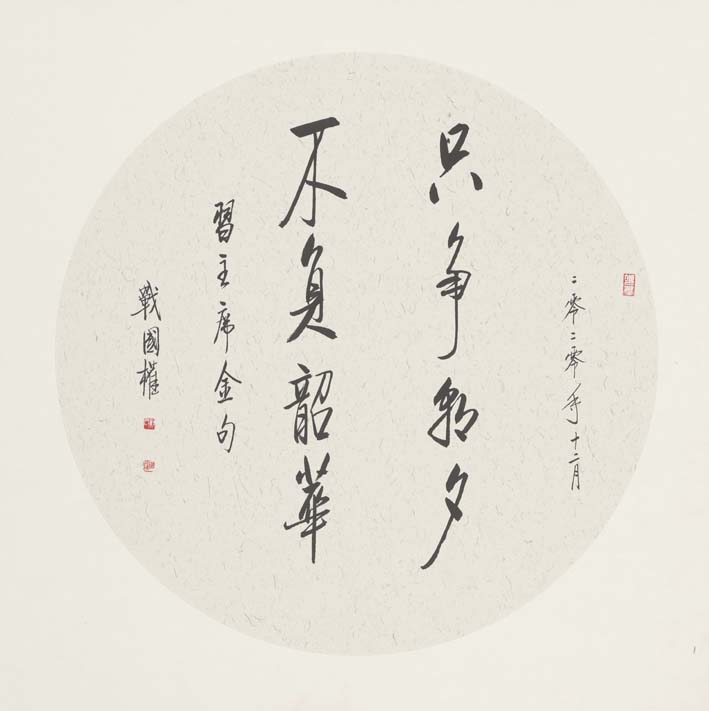 二零二零年十二月
只争朝夕
不負韶華
習主席金句
戰國權